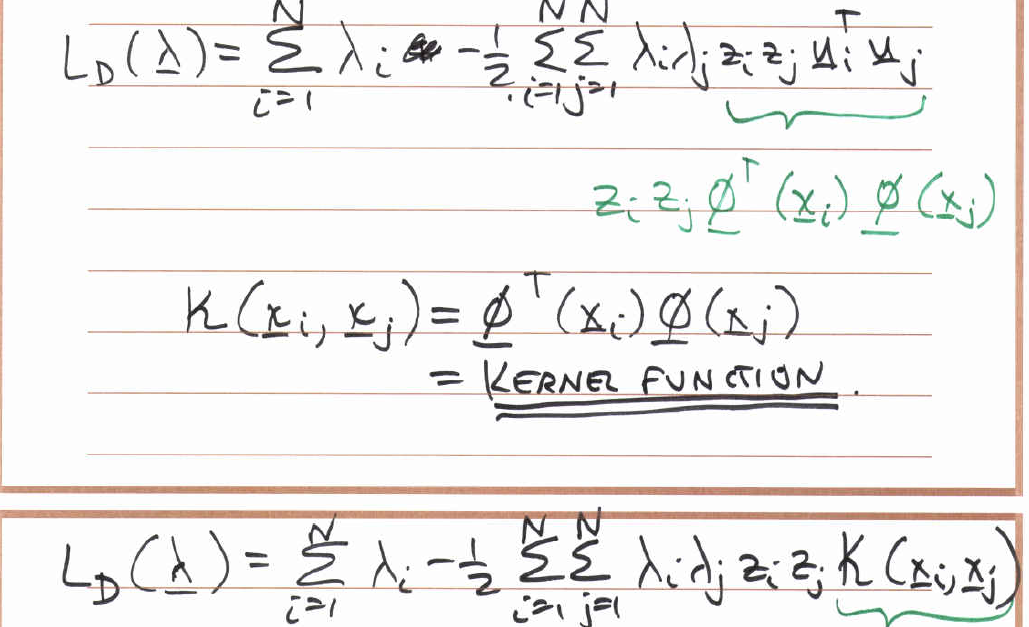 L_D(λ) = Σ_{i=1}^{N} λ_i - 1/2 Σ_{i=1}^{N} Σ_{j=1}^{N} λ_i λ_j z_i z_j u_i^T u_j
z_i z_j φ^T(x_i) φ(x_j)
K(x_i, x_j) = φ^T(x_i) φ(x_j)
= KERNEL FUNCTION.
L_D(λ) = Σ_{i=1}^{N} λ_i - 1/2 Σ_{i=1}^{N} Σ_{j=1}^{N} λ_i λ_j z_i z_j K(x_i, x_j)